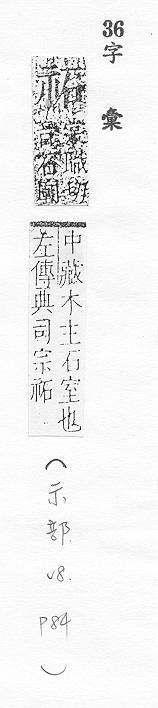 36字彙
祏
職切
音廟
中藏木主石室也
左傳典司宗祏
（示部. v8. P84）